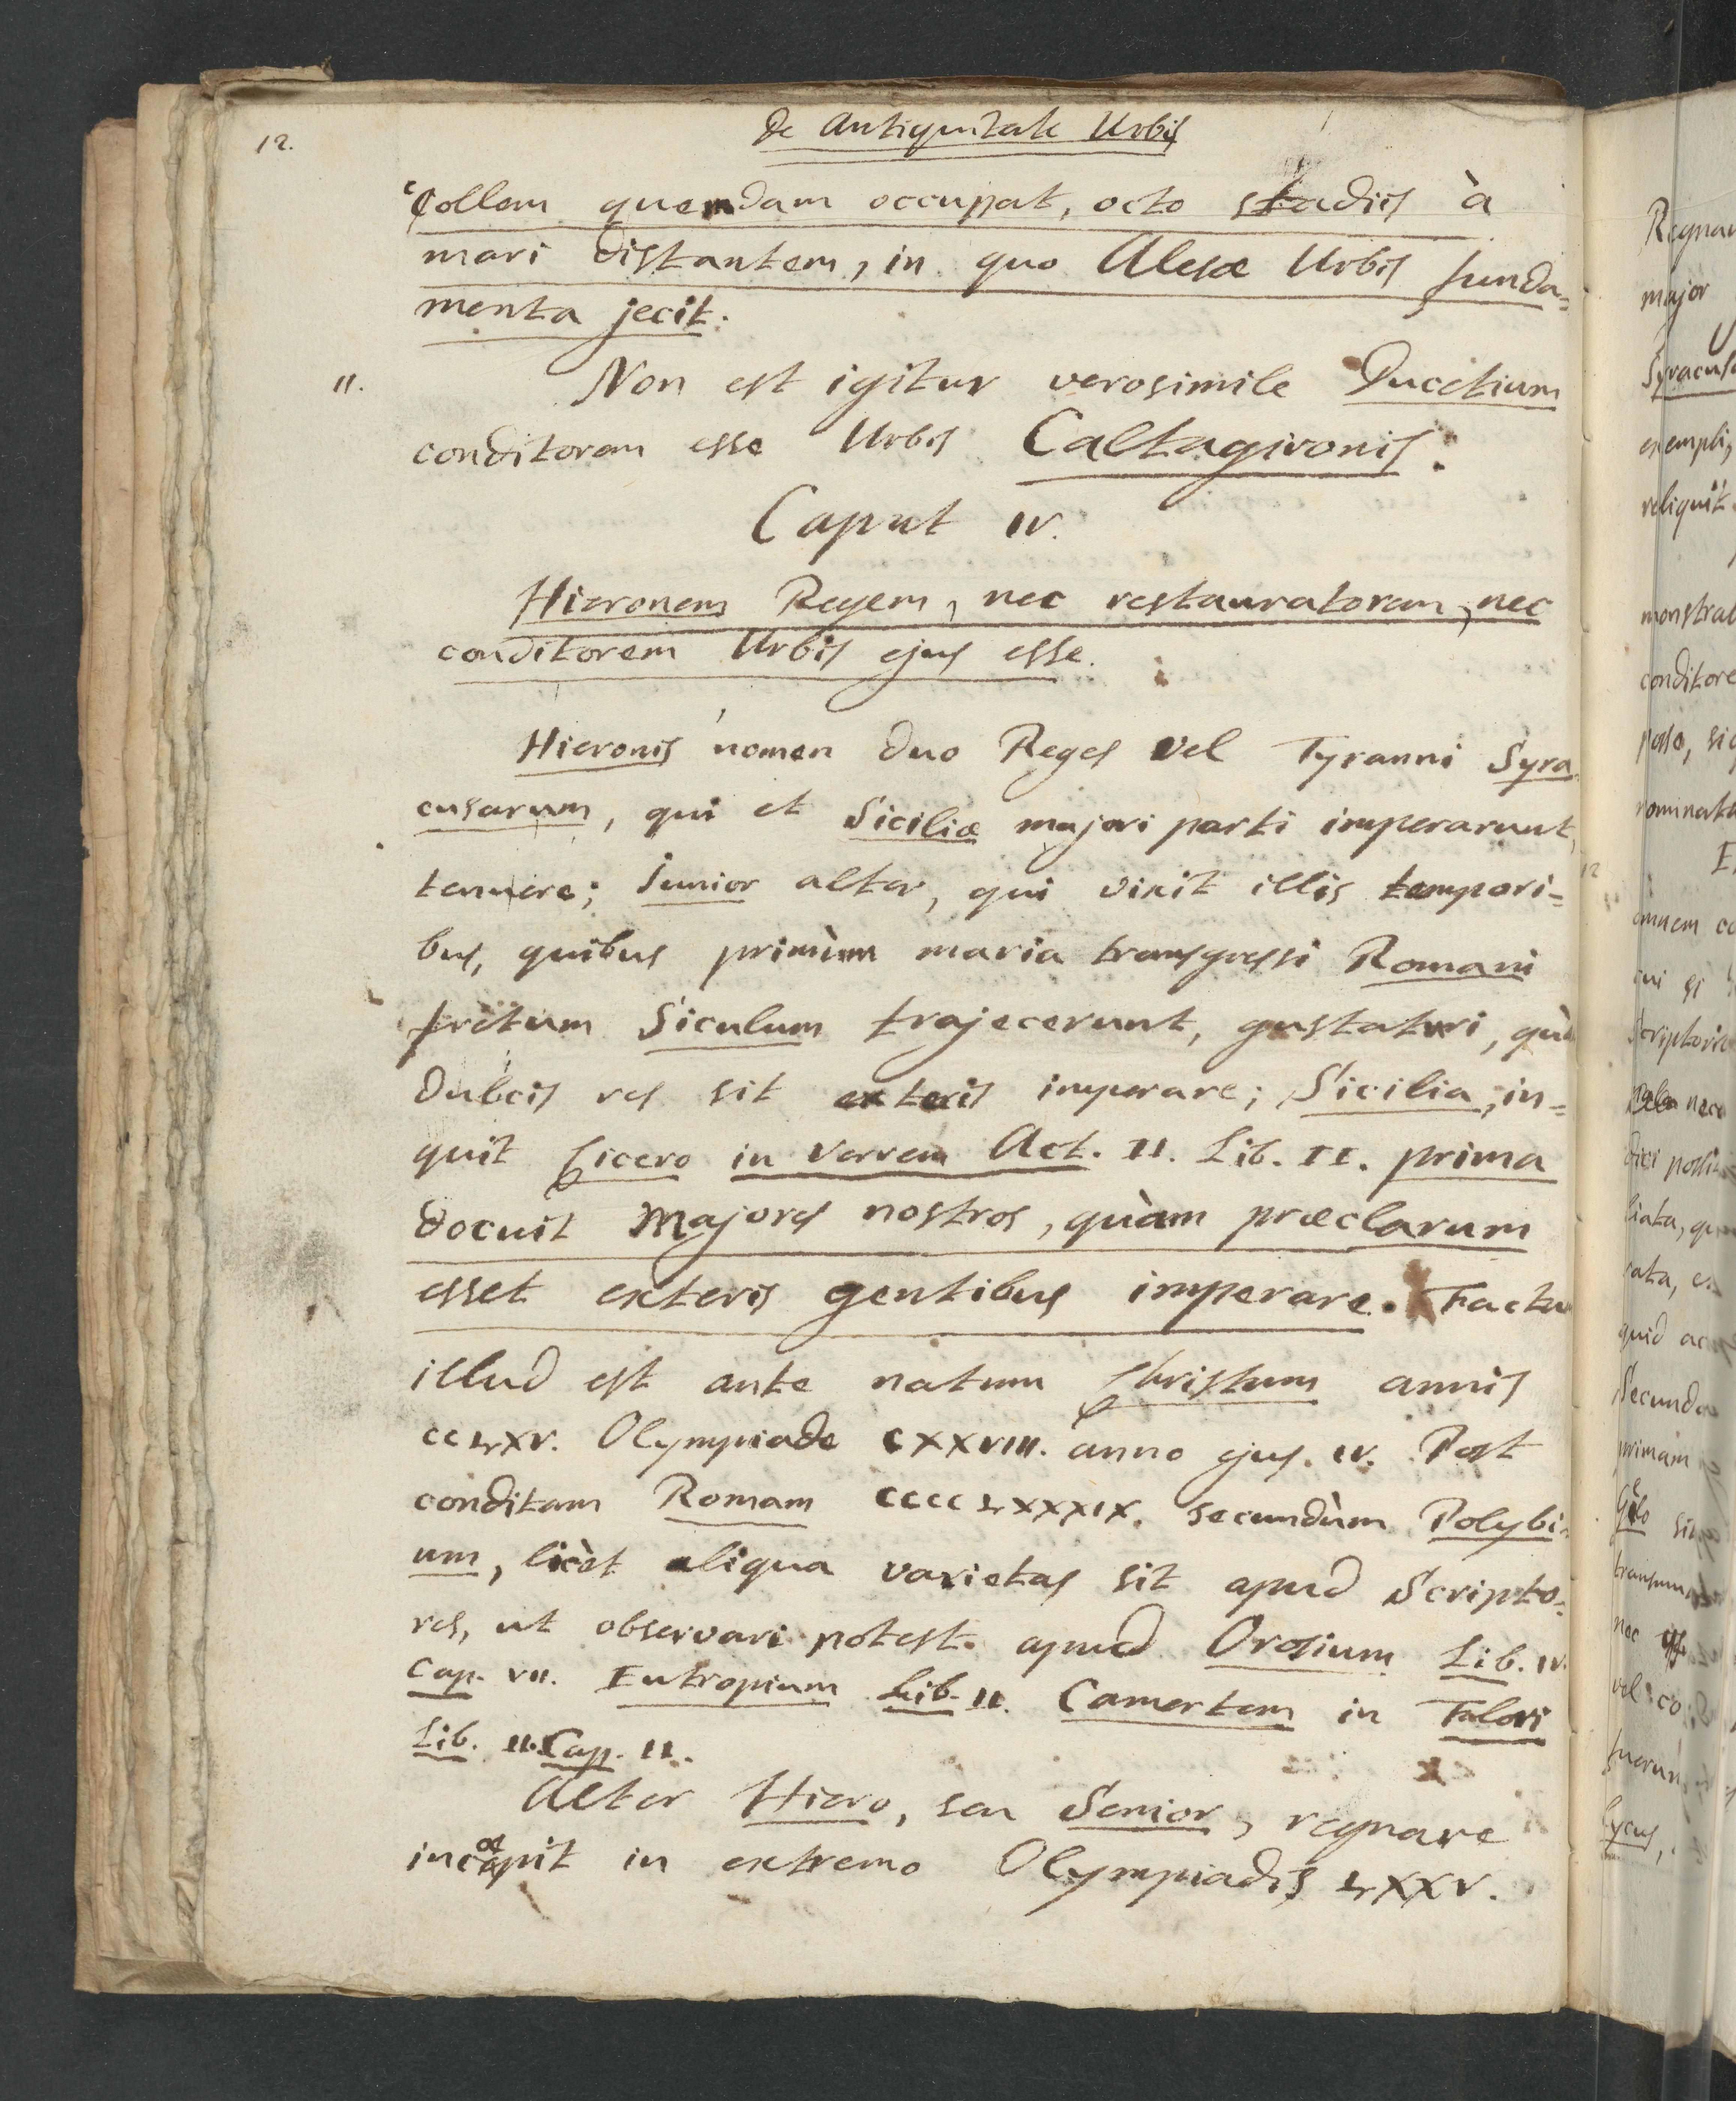 12.
De Antiquitate Urbis
Collem quemdam occupat, octo stadiis à
mari distantem, in quo Alesæ Urbis funda=
menta jecit.
11. Non est igitur verosimile Ducetium
conditorem esse Urbis Caltagironis.
Caput IV.
Hieronem Regem, nec restauratorem, nec
conditorem Urbis ejus esse.
Hieronis nomen duo Reges vel Tyranni Syra
cusarum, qui et Siciliæ majori parti imperarunt,
tenuere; Junior alter, qui vixit illis tempori=
bus, quibus primùm maria transgressi Romani
fretum Siculum trajecerunt, gustaturi, quàm
dulcis res sit exteris imperare; Sicilia, in=
quit Cicero in Verrem Act. II. Lib. II. prima
docuit Majores nostros, quàm præclarum
esset exteris gentibus imperare. Factu
illud est ante natum Christum annis
CCLXV. Olympiade CXXVIII. anno ejus. IV. Post
conditam Romam CCCCLXXXIX. secundùm Polybi=
um, licèt aliqua varietas sit apud Scripto=
res, ut observari potest. apud Orosium Lib. IV.
Cap. VII. Eutropium Lib. II. Camertem in Flori
Lib. II. Cap. II.
Alter Hiero, seu Senior, regnare
incœpit in extremo Olympiadis LXXV.
12
Regnan
major
Syracusa
exempli,
reliquit
monstrat
conditore
posse, sic
nominata
omnem co
cui si
Scriptori
nec
dici possit
quid ac
Secunda
primam
Gelo
nec
vel co
fuerun